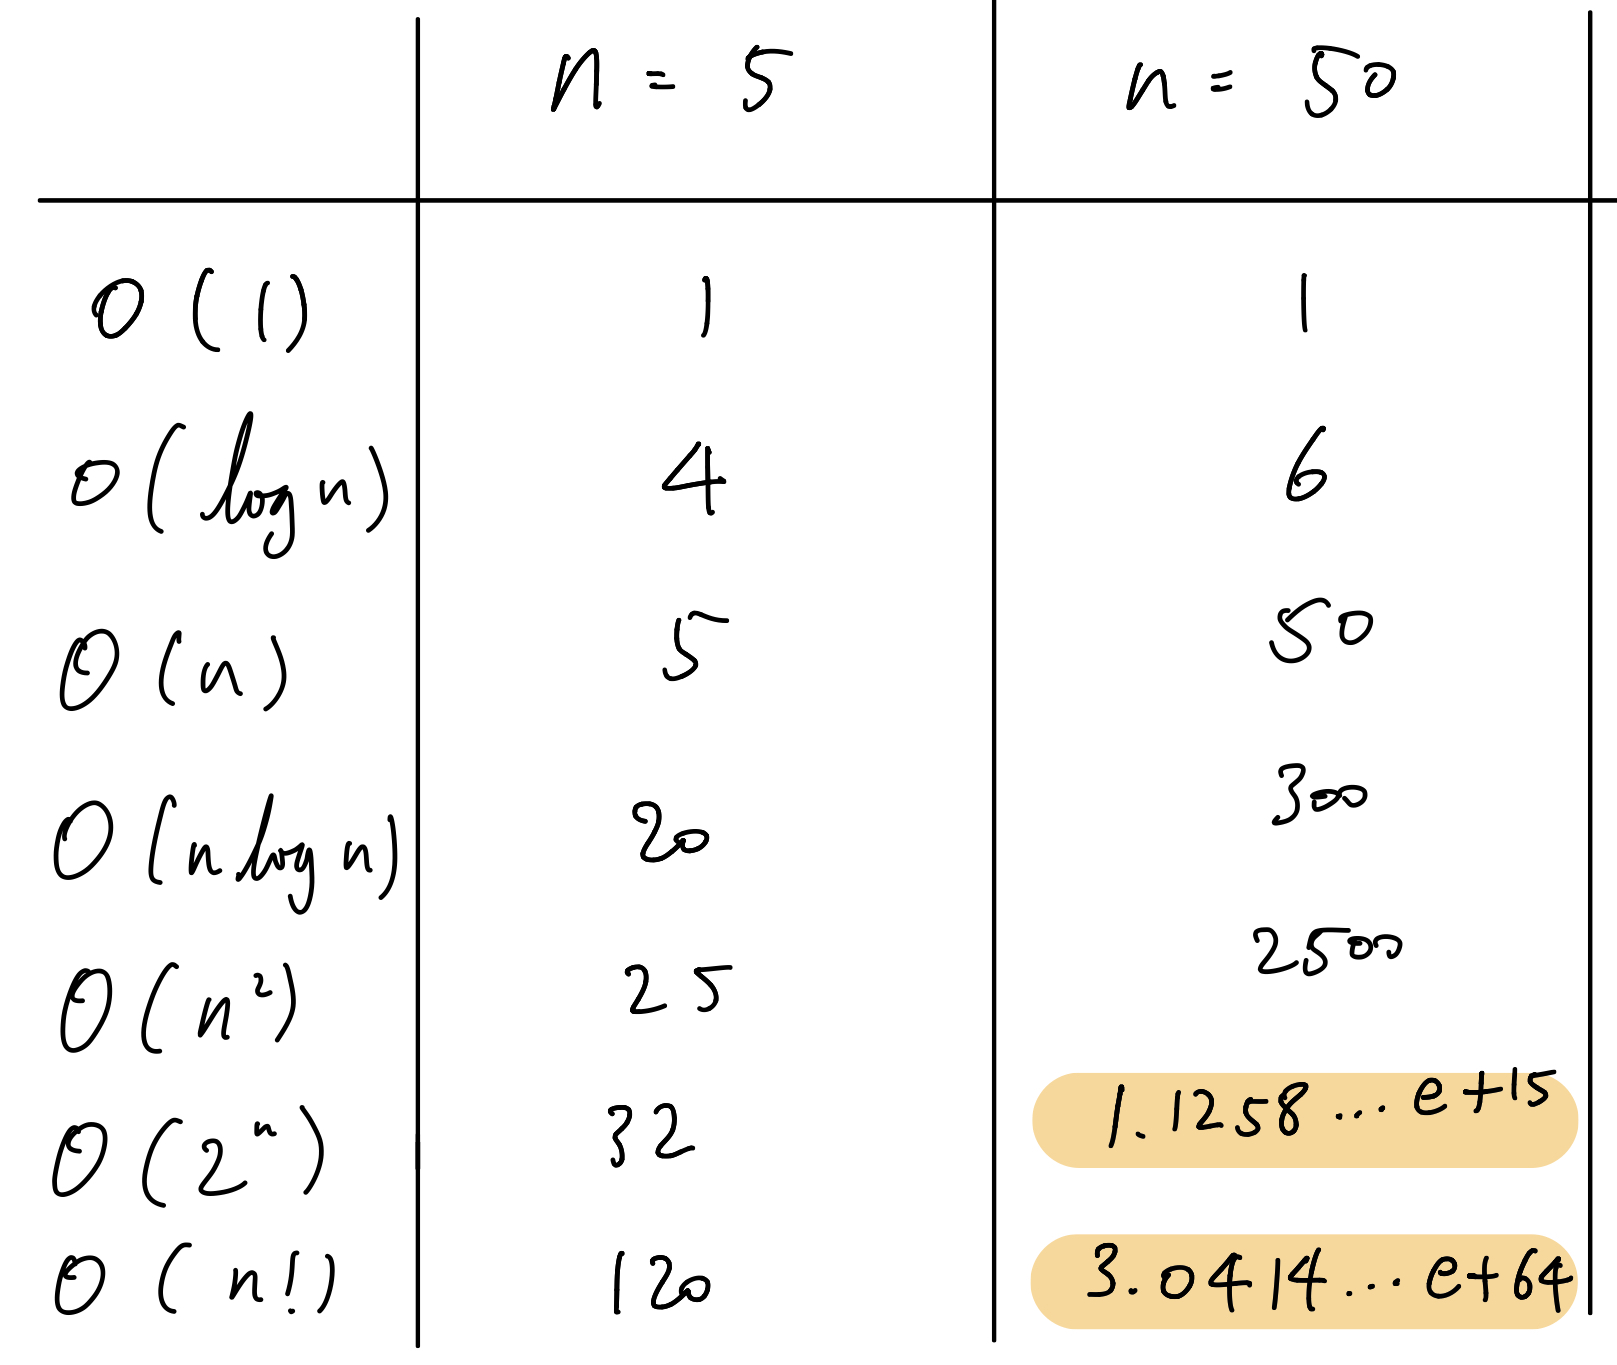 n = 5 n = 50
O(1) 1 1
O(log n) 4 6
O(n) 5 50
O(n log n) 20 300
O(n²) 25 2500
O(2ⁿ) 32 1.1258... e+15
O(n!) 120 3.0414... e+64